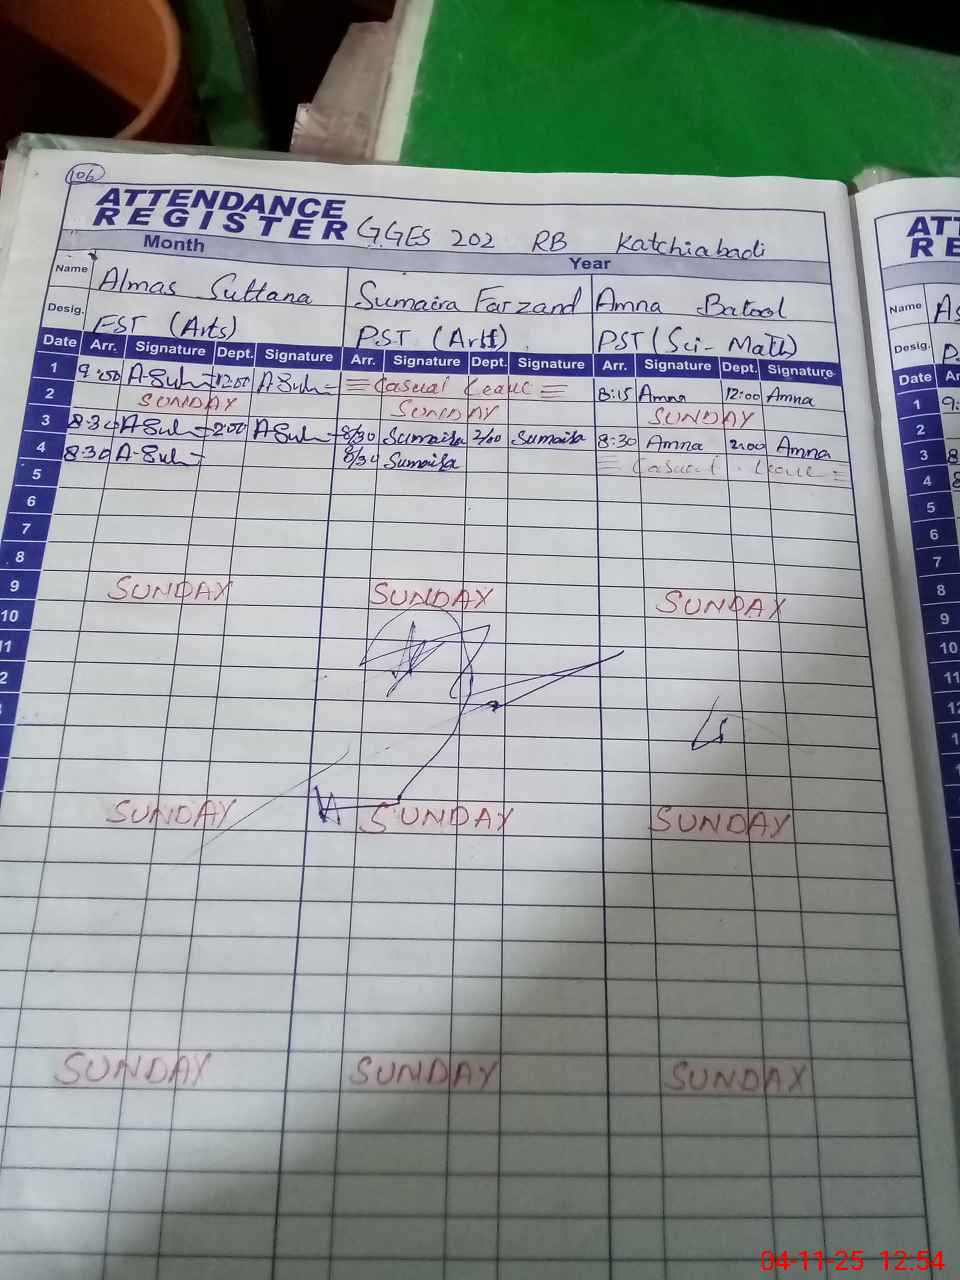 106
ATTENDANCE
REGISTER GGES 202 RB Katchiabadi
Month Year
Name Almas Sultana Sumaira Farzand Amna Batool
Desig. EST (Arts) PST (Arts) PST (Sci-Math)
Date Arr. Signature Dept. Signature Arr. Signature Dept. Signature Arr. Signature Dept. Signature
1 9:50 A-Sul 12:00 A-Sul Casual Leave 8:15 Amna 12:00 Amna
2 SUNDAY SUNDAY SUNDAY
3 8:30 A-Sul 2:00 A-Sul 8/30 Sumaira 2/00 Sumaira 8:30 Amna 2:00 Amna
4 8:30 A-Sul 8/30 Sumaira Casual Leave
5
6
7
8
9 SUNDAY SUNDAY SUNDAY
10
11
2
SUNDAY SUNDAY SUNDAY
SUNDAY SUNDAY SUNDAY
ATT
RE
Name As
Desig. P
Date Ar
1 9:
2
3 8
4 8
5
6
7
8
9
10
11
12
1
04-11-25 12:54